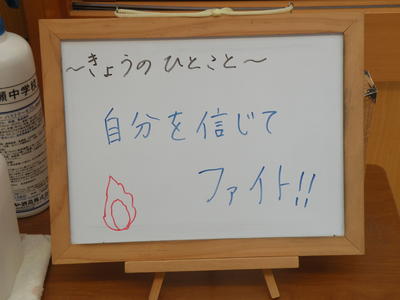 ～きょうの ひとこと～
自分を信じて
ファイト!!
中学校